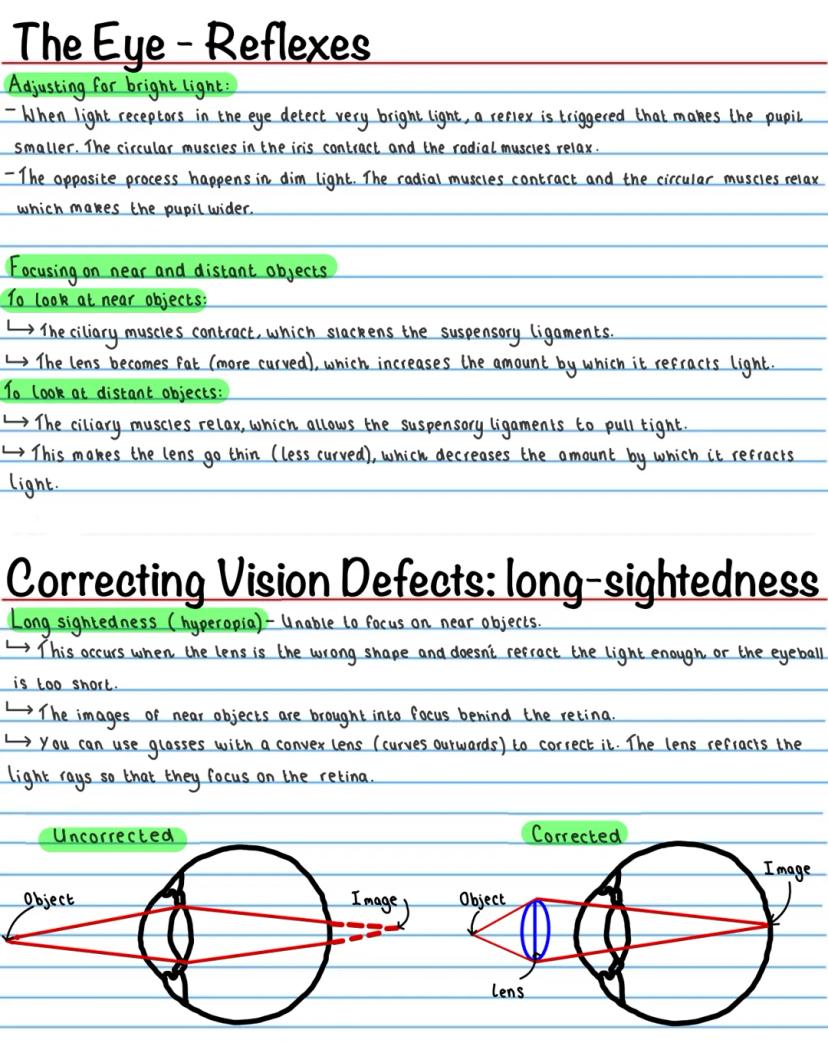 The Eye - Reflexes
Adjusting for bright light:
- When light receptors in the eye detect very bright light, a reflex is triggered that makes the pupil
smaller. The circular muscles in the iris contract and the radial muscles relax.
- The opposite process happens in dim light. The radial muscles contract and the circular muscles relax
which makes the pupil wider.
Focusing on near and distant objects
To look at near objects:
↳ The ciliary muscles contract, which slackens the suspensory ligaments.
↳ The lens becomes fat (more curved), which increases the amount by which it refracts light.
To look at distant objects:
↳ The ciliary muscles relax, which allows the suspensory ligaments to pull tight.
↳ This makes the lens go thin (less curved), which decreases the amount by which it refracts
light.
Correcting Vision Defects: long-sightedness
Long sightedness (hyperopia) - Unable to focus on near objects.
↳ This occurs when the lens is the wrong shape and doesn't refract the light enough or the eyeball
is too short.
↳ The images of near objects are brought into focus behind the retina.
↳ You can use glasses with a convex lens (curves outwards) to correct it. The lens refracts the
light rays so that they focus on the retina.
Uncorrected
Object
Image
Corrected
Object
Image
Lens